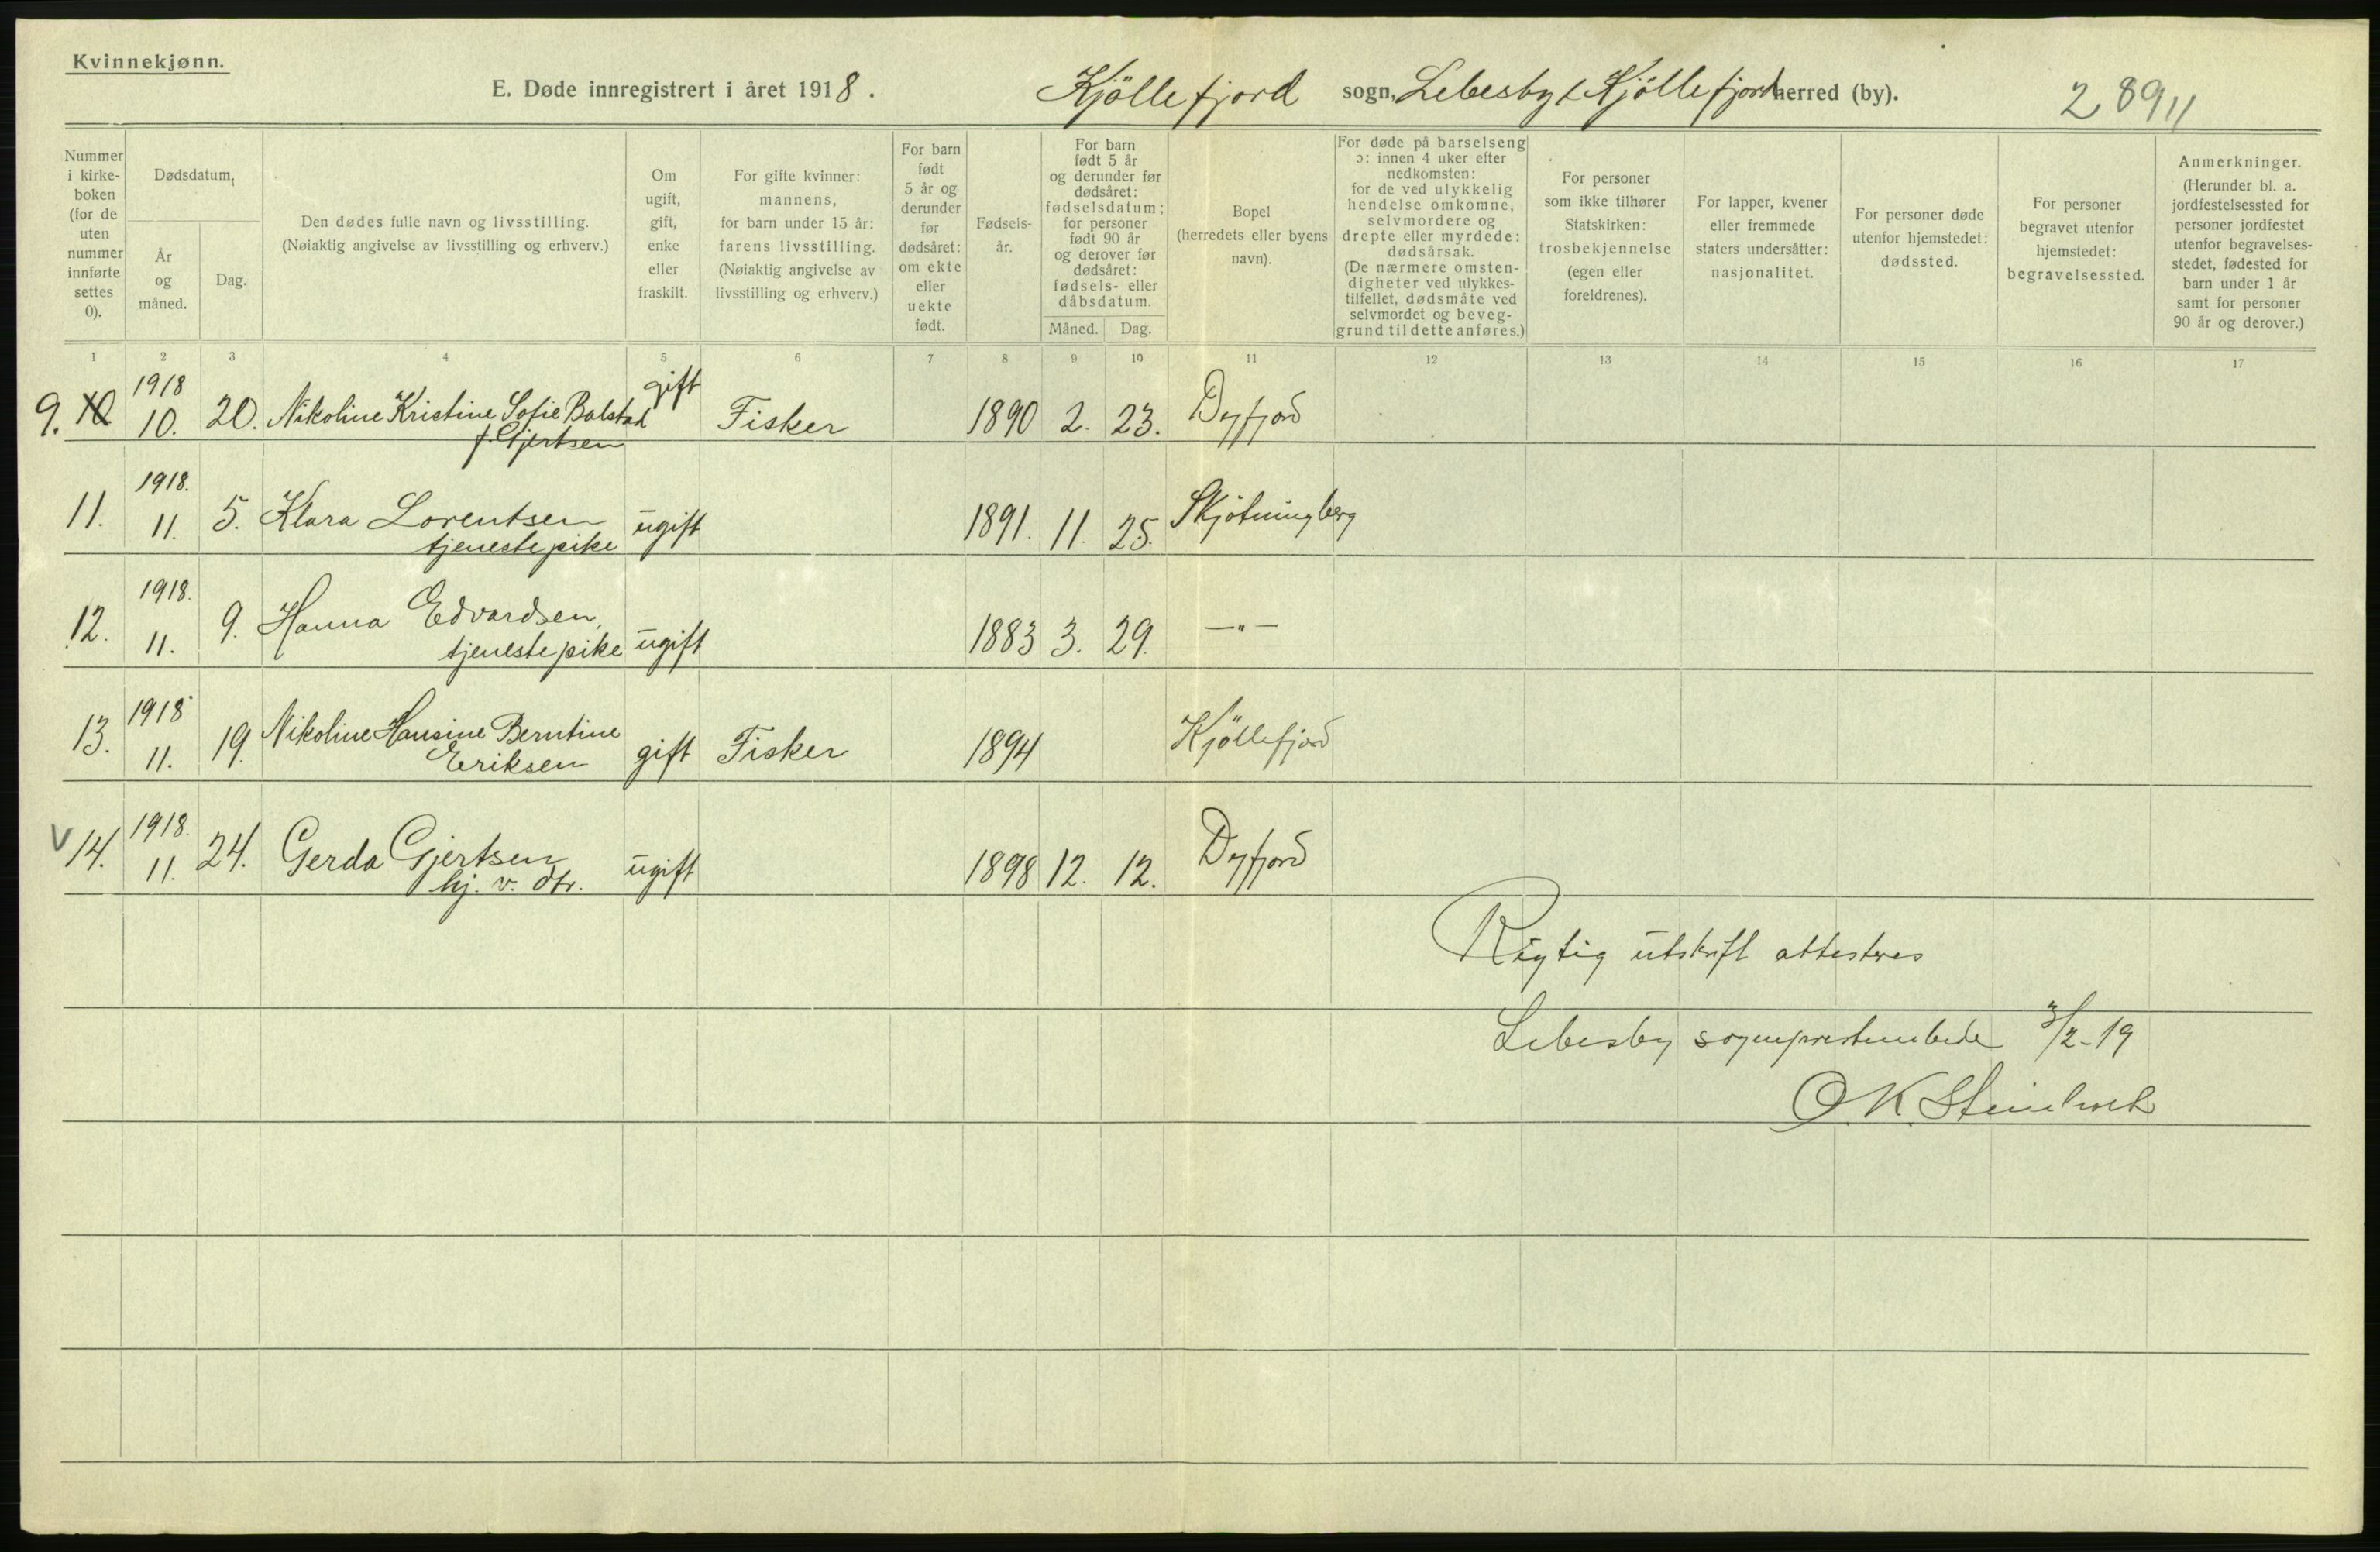 Kvinnekjønn.
E. Døde innregistrert i året 1918. Kjöllefjord sogn, Lebesby / Kjöllefjord herred (by). 2 89 11
Nummer i kirke- boken (for de uten nummer innførte settes 0).
Dødsdatum,
År og måned.
Dag.
Den dødes fulle navn og livsstilling.
(Nøiaktig angivelse av livsstilling og erhverv.)
Om ugift, gift, enke eller fraskilt.
For gifte kvinner: mannens, for barn under 15 år: farens livsstilling. (Nøiaktig angivelse av livsstilling og erhverv.)
For barn født 5 år og derunder før dødsåret: om ekte eller uekte født.
Fødsels- år.
For barn født 5 år og derunder før dødsåret: fødselsdatum; for personer født 90 år og derover før dødsåret: fødsels- eller dåbsdatum.
Måned. Dag.
Bopel (herredets eller byens navn).
For døde på barselseng ɔ: innen 4 uker efter nedkomsten: for de ved ulykkelig hendelse omkomne, selvmordere og drepte eller myrdede: dødsårsak. (De nærmere omsten- digheter ved ulykkes- tilfellet, dødsmåte ved selvmordet og beveg- grund til dette anføres.)
For personer som ikke tilhører Statskirken: trosbekjennelse (egen eller foreldrenes).
For lapper, kvener eller fremmede staters undersåtter: nasjonalitet.
For personer døde utenfor hjemstedet: dødssted.
For personer begravet utenfor hjemstedet: begravelsessted.
Anmerkninger. (Herunder bl. a. jordfestelsessted for personer jordfestet utenfor begravelses- stedet, fødested for barn under 1 år samt for personer 90 år og derover.)
1 2 3 4 5 6 7 8 9 10 11 12 13 14 15 16 17
9. 10 1918 10. 20. Nikoline Kristine Sofie Balstad gift Fisker 1890 2. 23. Dyfjord
f. Gjertsen
11. 1918. 11. 5. Klara Lorentsen ugift 1891. 11. 25. Skjötningberg
tjenestepike
12. 1918. 11. 9. Hanna Edvardsen, ugift 1883 3. 29. —"—
tjenestepike
13. 1918 11. 19. Nikoline Hansine Berntine gift Fisker 1894 Kjöllefjord
Eriksen
V 14. 1918. 11. 24. Gerda Gjertsen ugift 1898 12. 12. Dyfjord
hj. v. dtr.
Rigtig utskrift attesteres
Lebesby sogneprestembede 3/2-19
O. K.